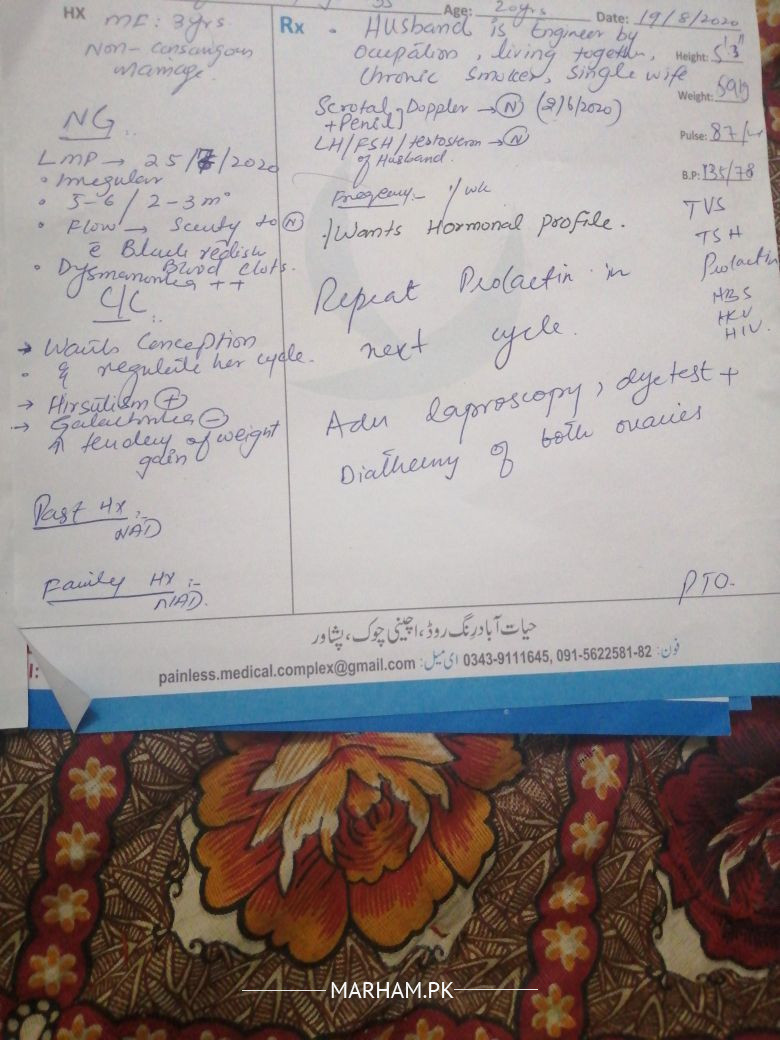 HX
ME: 3yrs
Non-consangous
marriage.
NG
LMP → 25/7/2020
• Irregular
• 5-6 / 2-3 m
• Flow → Scanty to N
c̄ Black redish
Blood clots.
• Dysmanorrhea ++
C/C
→ Wants Conception
• & regulate her cycle.
→ Hirsutism +
→ Galactorrhea -
↑ tendency of weight
gain
Past Hx :-
NAD
Family Hx :-
NAD.
Age: 20yrs Date: 19/8/2020
Rx • Husband is Engineer by
Ocupation, living together,
Chronic smoker, Single wife
Scrotal Doppler → N (2/6/2020)
+ Penile
LH/FSH/testosteron → N
of Husband.
Freqency:- 1/wk
Wants Hormonal Profile.
Repeat Prolactin in
next cycle.
Adv laproscopy, dye test +
Diathermy of both ovaries
PTO.
Height: 5'3"
Weight:
Pulse: 87/
B.P: 135/78
TVS
TSH
Prolactin
HBS
HCV
HIV.
حیات آباد رنگ روڈ، اچینی چوک، پشاور
فون: 0343-9111645, 091-5622581-82 ای میل: painless.medical.complex@gmail.com
MARHAM.PK